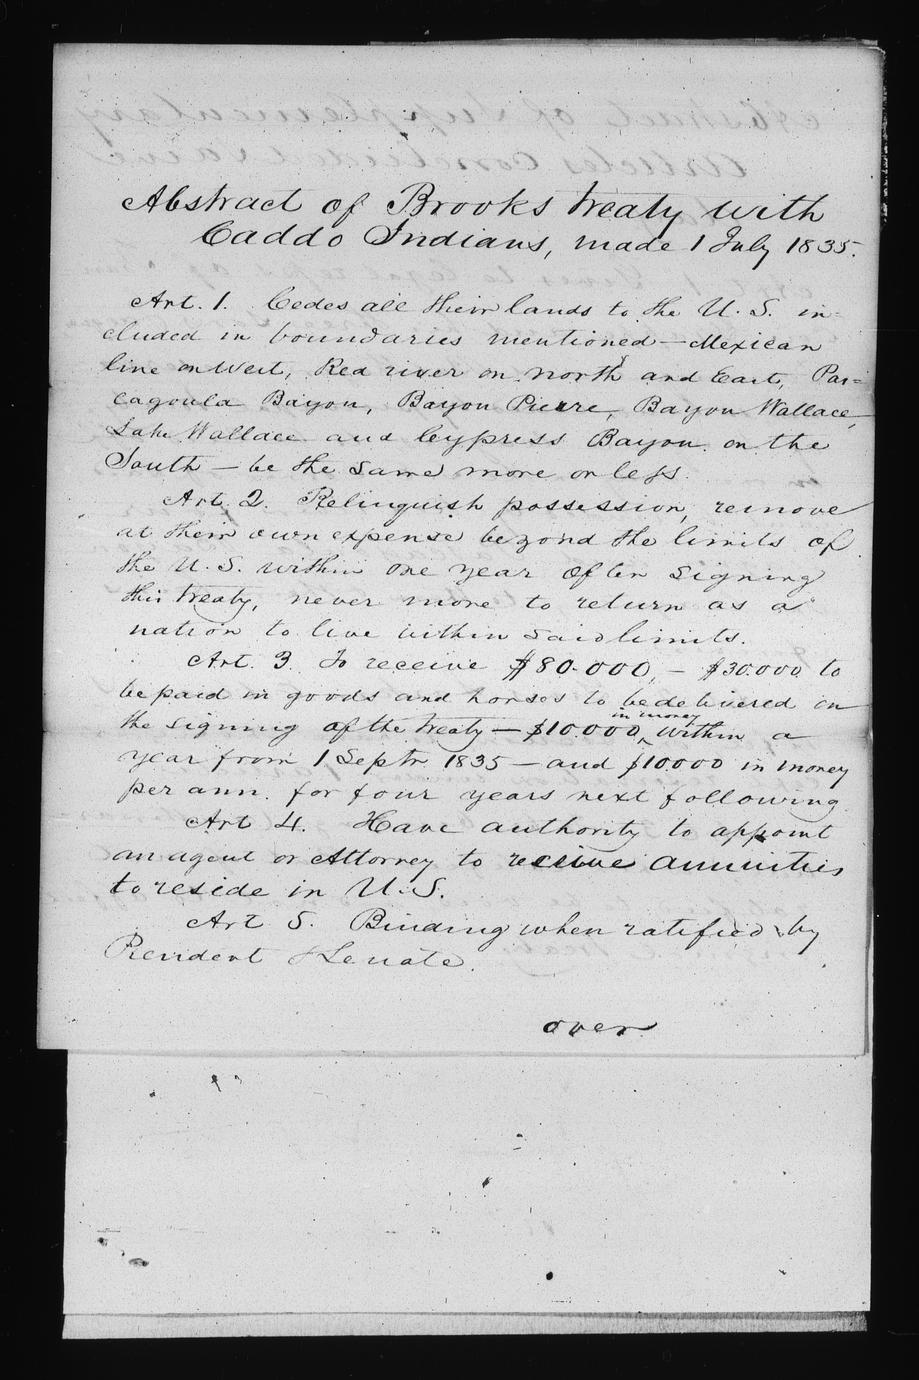 Abstract of Brooks treaty with
Caddo Indians, made 1 July 1835.
Art. 1. Cedes all their lands to the U. S. in-
cluded in boundaries mentioned — Mexican
line on West, Red river on north and East, Pas=
cagoula Bayou, Bayou Pierre, Bayou Wallace,
Lake Wallace and Cypress Bayou on the
South — be the same more or less.
Art. 2. Relinquish possession, remove
at their own expense beyond the limits of
the U. S. within one year after signing
this treaty, never more to return as a
nation to live within said limits.
Art. 3. To receive $80.000, — $30.000 to
be paid in goods and horses to be delivered on
the signing of the treaty — $10.000, in money within a
year from 1 Septr 1835 — and $10.000 in money
per ann. for four years next following.
Art 4. Have authority to appoint
an agent or Attorney to receive annuities
to reside in U. S.
Art 5. Binding when ratified by
President & Senate.
over